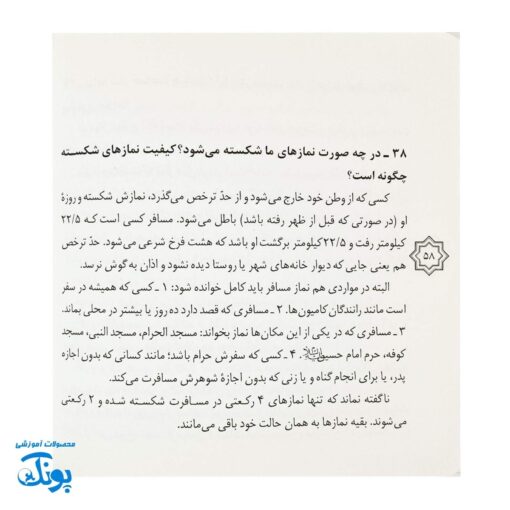 ۳۸ ـ در چه صورت نمازهای ما شکسته می‌شود؟ کیفیت نمازهای شکسته
چگونه است؟
کسی که از وطن خود خارج می‌شود و از حدّ ترخص می‌گذرد، نمازش شکسته و روزهٔ
او (در صورتی که قبل از ظهر رفته باشد) باطل می‌شود. مسافر کسی است کـه ۲۲/۵
کیلومتر رفت و ۲۲/۵کیلومتر برگشت او باشد که هشت فرخ شرعی می‌شود. حدّ ترخص
هم یعنی جایی که دیوار خانه‌های شهر یا روستا دیده نشود و اذان به گوش نرسد.
البته در مواردی هم نماز مسافر باید کامل خوانده شود: ۱ ـ کسی که همیشه در سفر
است مانند رانندگان کامیون‌ها. ۲ ـ مسافری که قصد دارد ده روز یا بیشتر در محلی بماند.
۳ ـ مسافری که در یکی از این مکان‌ها نماز بخواند: مسجد الحرام، مسجد النبی، مسجد
کوفه، حرم امام حسین. ۴ ـ کسی که سفرش حرام باشد؛ مانند کسانی که بدون اجازه
پدر، یا برای انجام گناه و یا زنی که بدون اجازهٔ شوهرش مسافرت می‌کند.
ناگفته نماند که تنها نمازهای ۴ رکـعتی در مسـافرت شکسـته شده و ۲ رکـعتی
می‌شوند. بقیه نمازها به همان حالت خود باقی می‌مانند.
۵۸
محصولات آموزشی
پونک